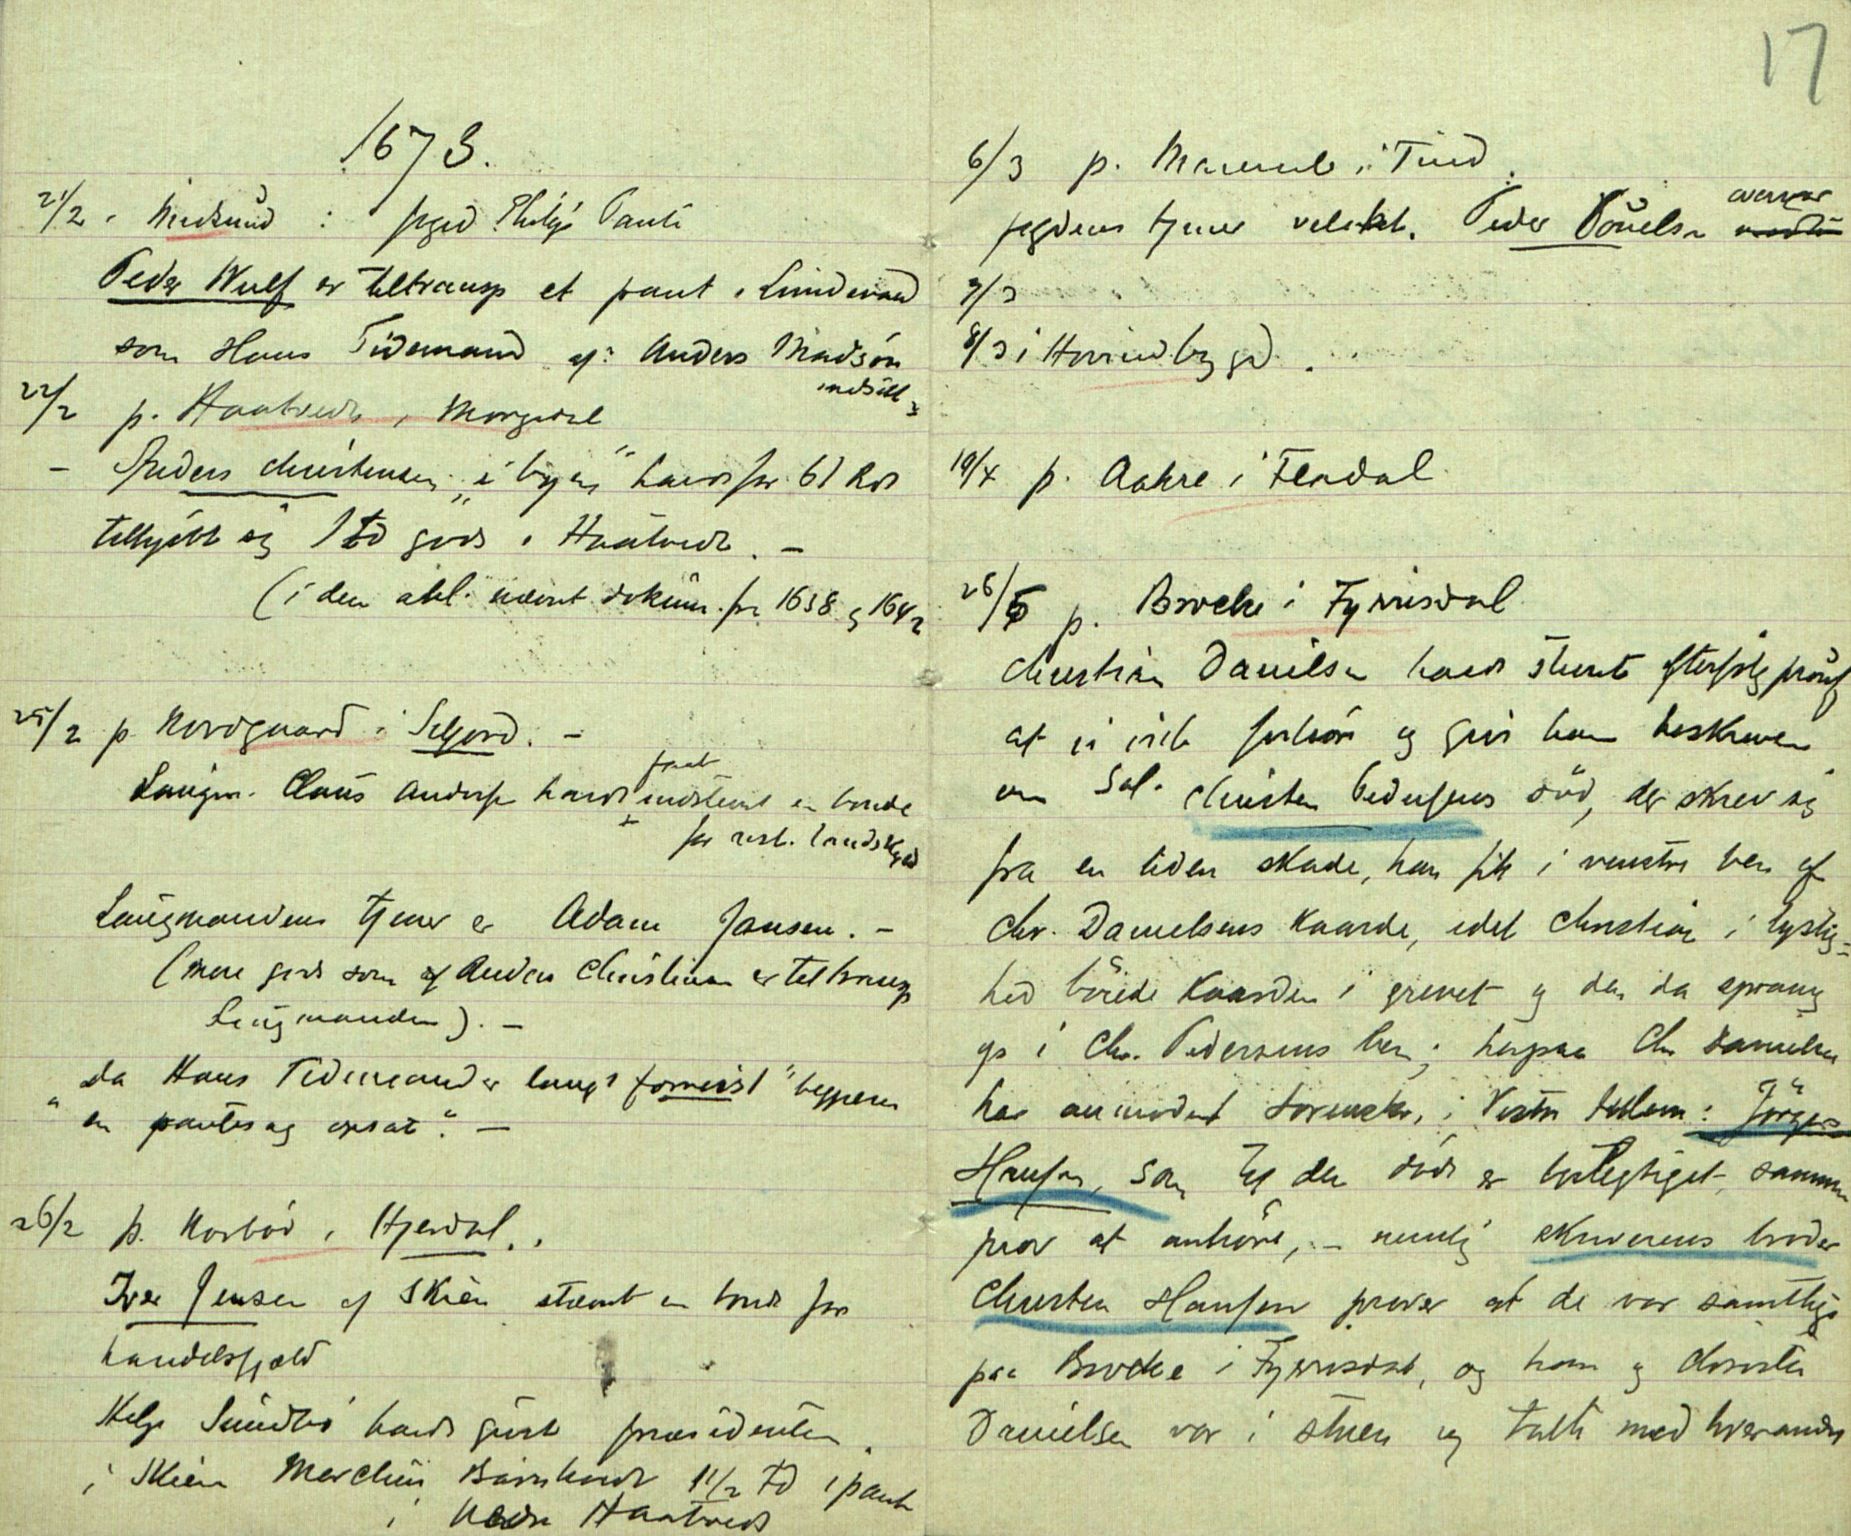 1673.
21/2 i Midsund : foged Philip Pauli
Peder Wulf er tiltransp et pant i Lindevad
som Hans Tidemand af: Anders Madsøn
indsatt
22/2 p. Haatvedt, Morgedal
- Anders Christensen „i byen" havde for 61 Rdr
tilkjøbt sig 1 td gods i Haatvedt. -
(i den anl. nævnt dokum. fra 1638 og 1642
25/2 p Nordgaard i Seljord. -
Laugm. Claus Andersen havde indstevnt en bonde
ladt
for rest. landskyld
Laugmandens tjener er Adam Jansen. -
(mere gods som af Anders Christensen er tiltransp
Laugmanden). -
da Hans Tidemand er langt forneist"
" en pantesag opsat". -
26/2 p. Norbø, i Hjerdal.
Iver Jensen af Skien stævnt en bonde for
handelsgjæld
Helge Sundbø havde givet præsidenten
i Skien Marchus Barnhardt 1 1/2 td i pant
i Nedre Haatvedt
17
6/3 p. Marum i Tind.
fogdens tjener velakt. Peder Pouelsen
overvar
7/3
8/3 i Hovindbygd.
19/4 p. Aakre i Flådal
26/5 p. Brocke i Fyrrisdal
Christian Danielsen havde stevnt efterfølg prouf
at i irett forhøre og give ham beskreven
om Sal. Christen Pedersens død, der skrev sig
fra en liden skade, han fik i venstre ben af
Chr. Danielsens Kaarde, idet Christian i lystig-
hed bøiede Kaarden i grevet og den da sprang
op i Chr. Pedersens ben; herpaa Chr Danielsen
har anmodet Sorenskr. i Vestre Tellem: Jørgen
Hansen, som til den døde er besvegtiget, samme
prov at anhøre, - nemlig skriverens broder
Christen Hansen prover at de var samtlige
paa Brocke i Fyrrisdal, og han og Christen
Danielsen var i stuen og talte med hverandre